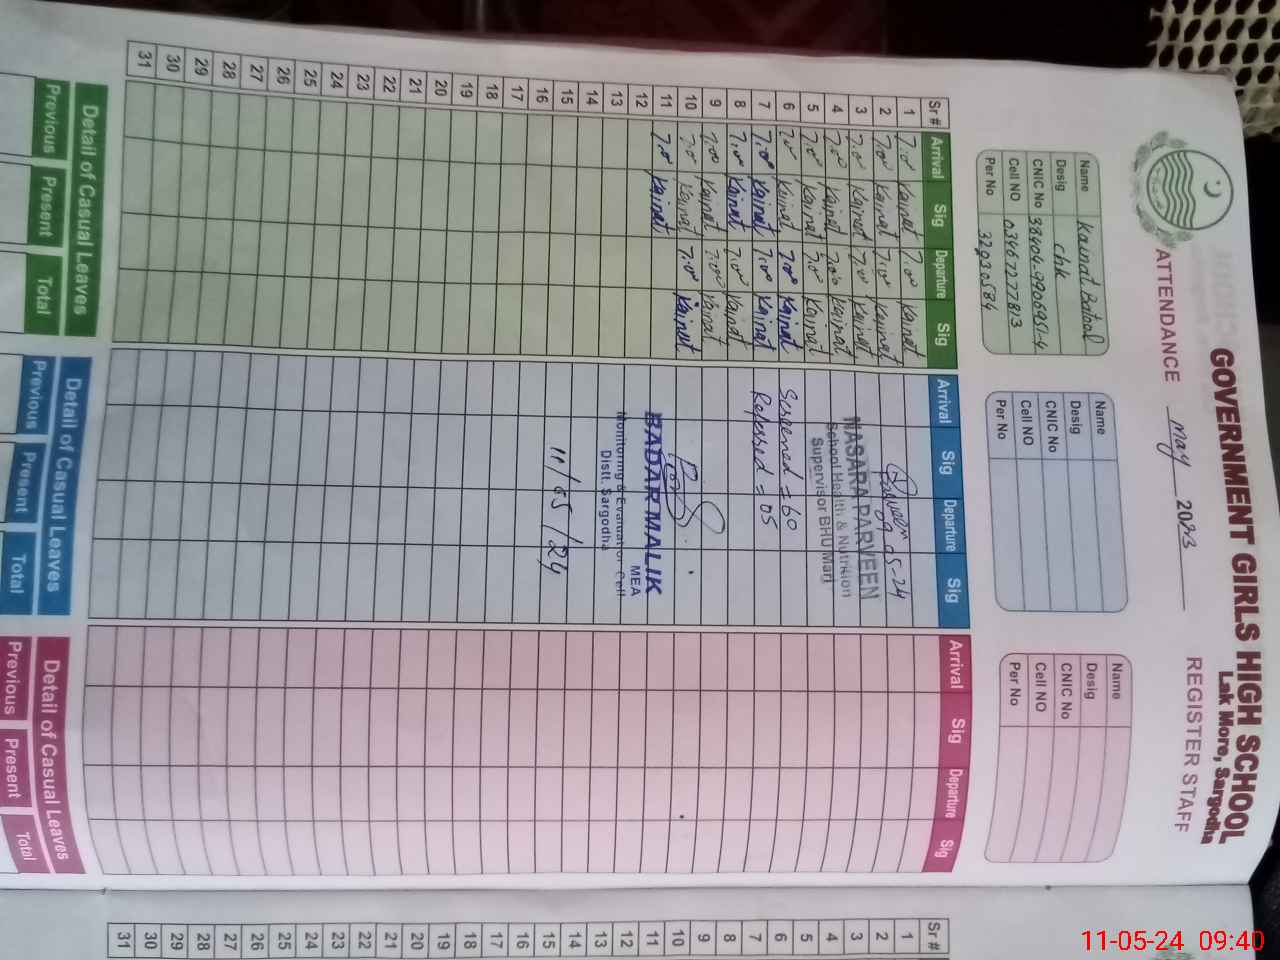 GOVERNMENT GIRLS HIGH SCHOOL
Lak More, Sargodha
ATTENDANCE May 2023 REGISTER STAFF
Name Kainat Batool
Desig chk
CNIC No 38404-9906951-4
Cell NO 03467277813
Per No 32030584
Name
Desig
CNIC No
Cell NO
Per No
Name
Desig
CNIC No
Cell NO
Per No
Sr # Arrival Sig Departure Sig Arrival Sig Departure Sig Arrival Sig Departure Sig
1 7.00 Kainat 7.00 Kainat
2 7.00 Kainat 7.00 Kainat
3 7.00 Kainat 7.00 Kainat
4 7.00 Kainat 7.00 Kainat
5 7.00 Kainat 7.00 Kainat
6 7.00 Kainat 7.00 Kainat
7 7.00 Kainat 7.00 Kainat
8 7.00 Kainat 7.00 Kainat
9 7.00 Kainat 7.00 Kainat
10 7.00 Kainat 7.00 Kainat
11 7.00 Kainat
12
13
14
15
16
17
18
19
20
21
22
23
24
25
26
27
28
29
30
31
Parveen
09-05-24
NASARA PARVEEN
School Health & Nutrition
Supervisor BHU Mari
Screened = 60
Refessed = 05
BADAR MALIK
MEA
Monitoring & Evaluation Cell
Distt. Sargodha
11/05/24
Detail of Casual Leaves
Previous Present Total
Detail of Casual Leaves
Previous Present Total
Detail of Casual Leaves
Previous Present Total
Sr #
1
2
3
4
5
6
7
8
9
10
11
12
13
14
15
16
17
18
19
20
21
22
23
24
25
26
27
28
29
30
31
11-05-24 09:40